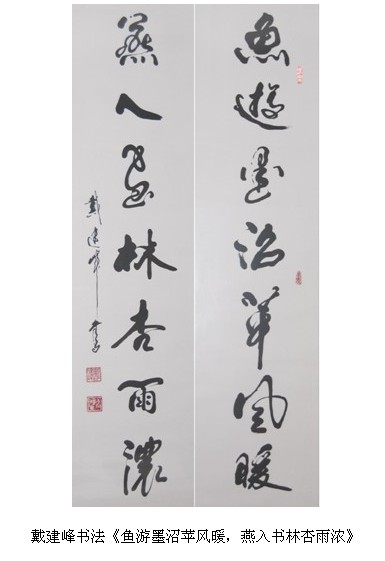 魚遊墨沼苹风暖
燕入书林杏雨濃
戴建峰书
戴建峰书法《鱼游墨沼苹风暖，燕入书林杏雨浓》